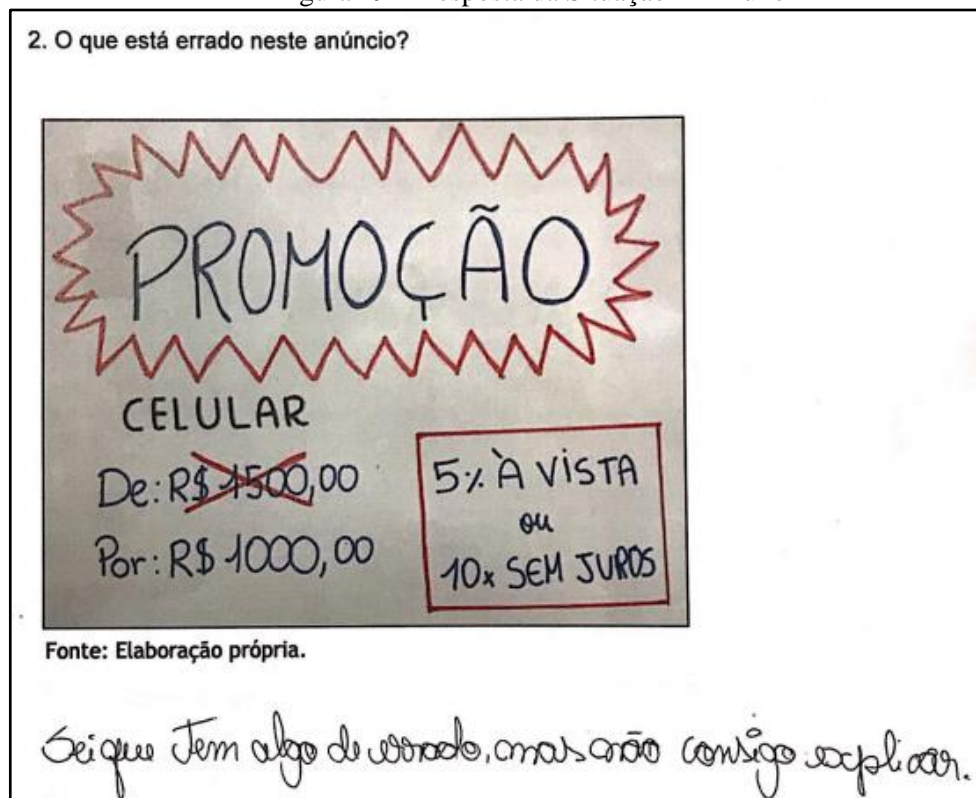 2. O que está errado neste anúncio?
PROMOÇÃO
CELULAR
De: R$ 1500,00
Por: R$ 1000,00
5% À VISTA
ou
10x SEM JUROS
Fonte: Elaboração própria.
Sei que tem algo de errado, mas não consigo explicar.